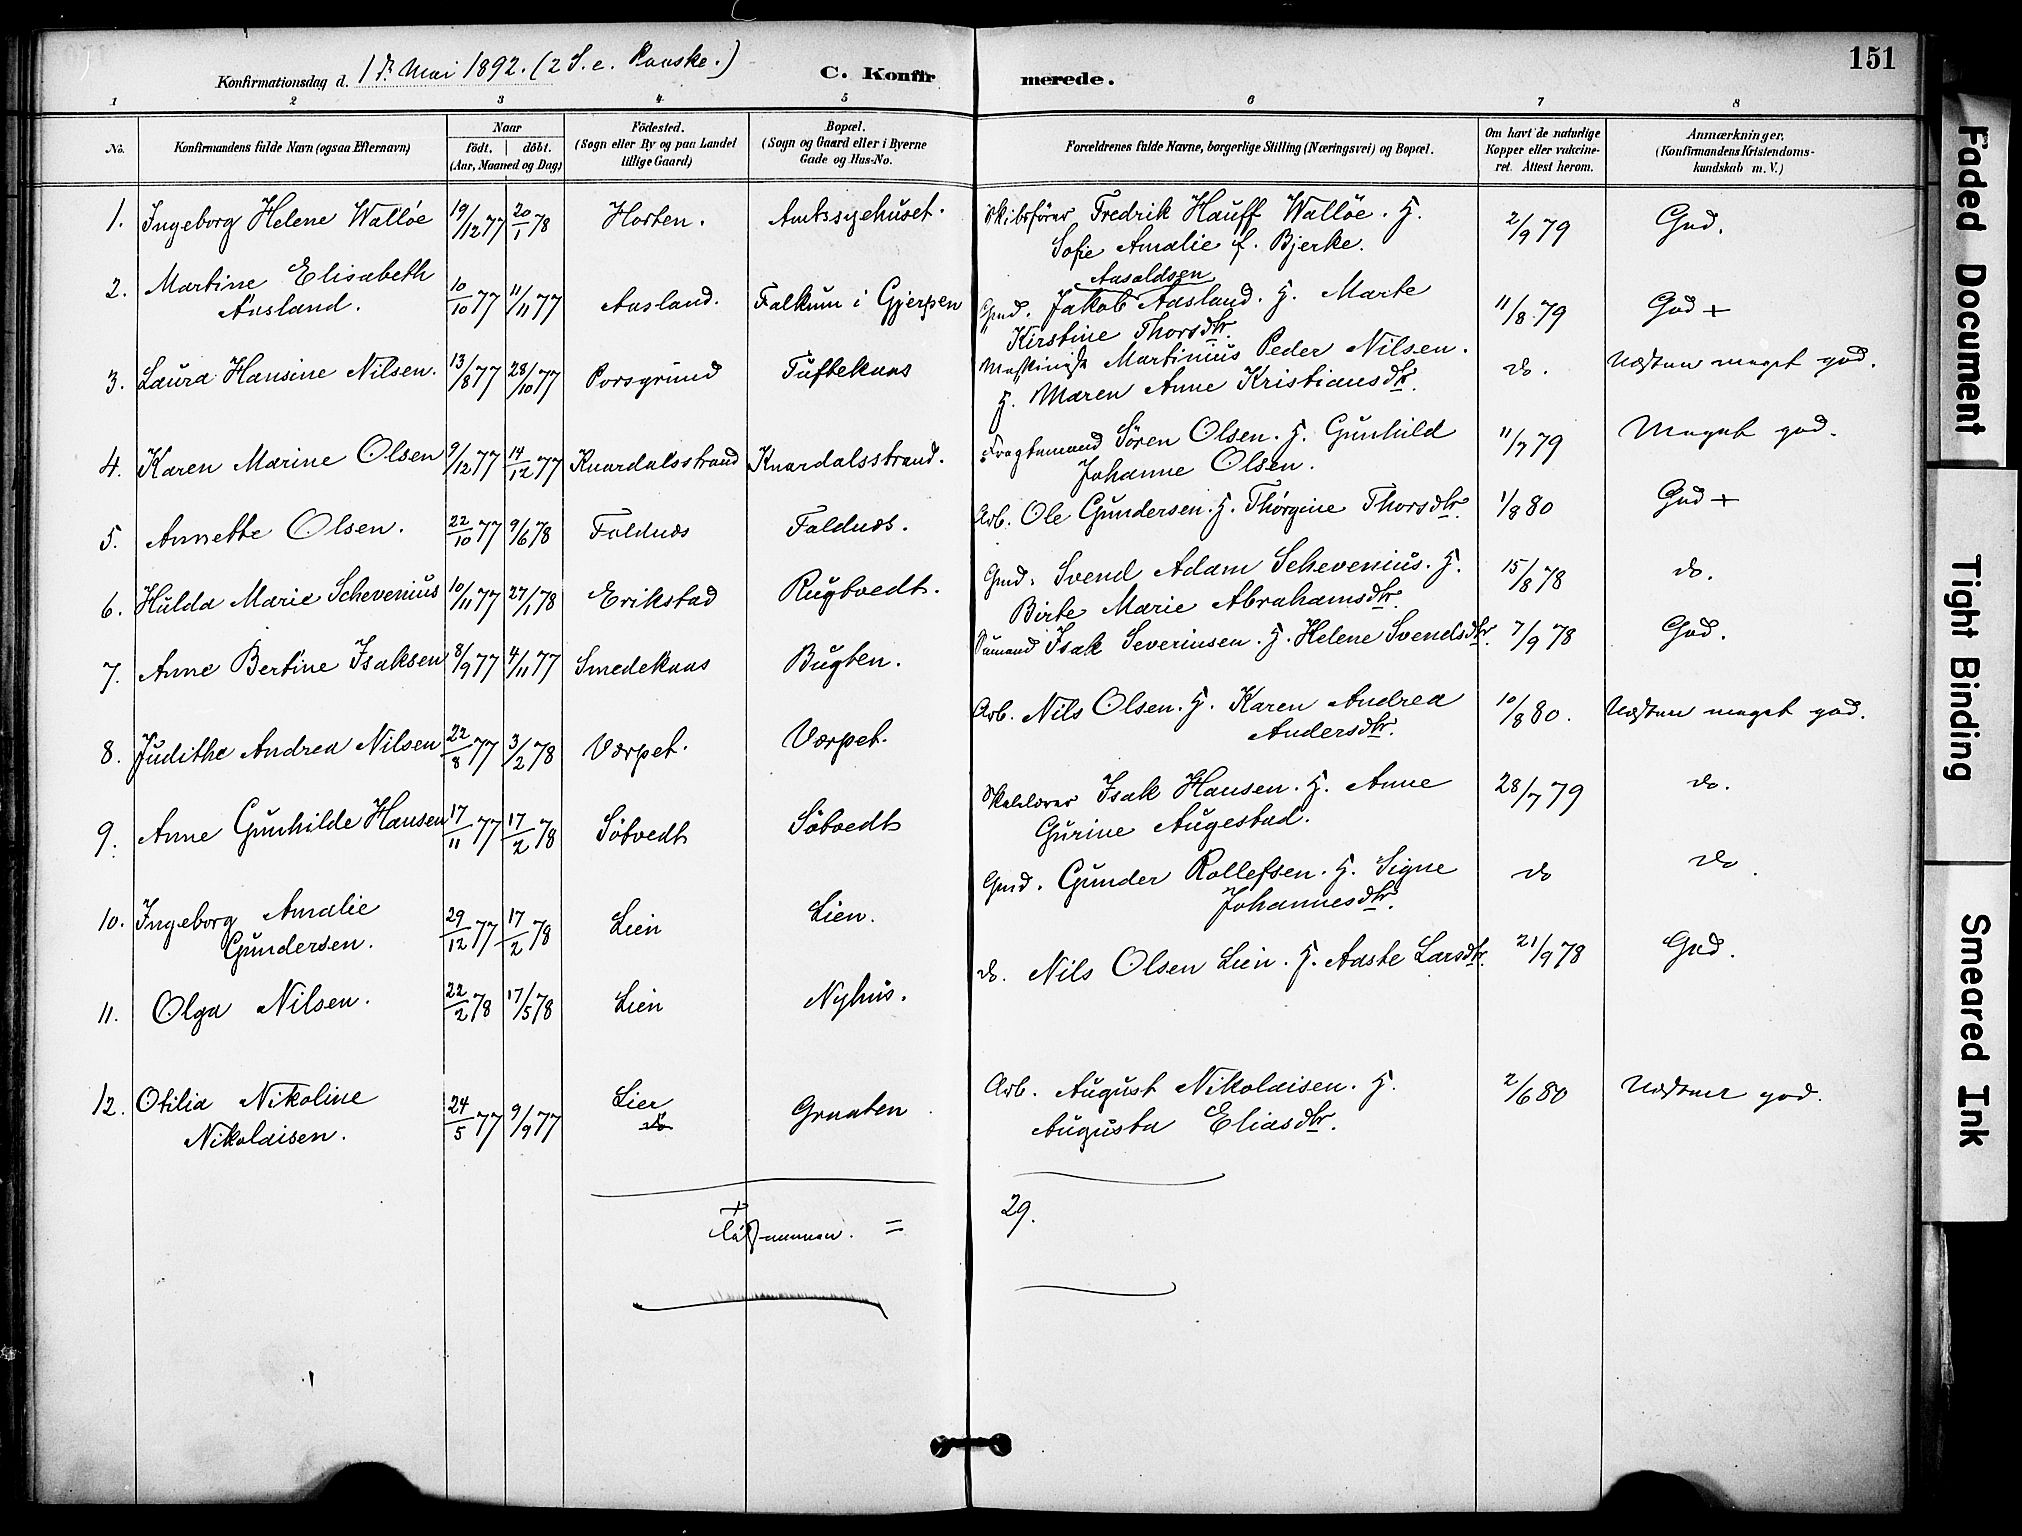 151
Konfirmationsdag d. 1ste Mai 1892. (2 S. e. Paaske.) C. Konfirmerede.
1 2 3 4 5 6 7 8
No. Konfirmandens fulde Navn (ogsaa Efternavn) Naar født, døbt. (Aar, Maaned og Dag) Födested. (Sogn eller By og paa Landet tillige Gaard) Bopæl. (Sogn og Gaard eller i Byerne Gade og Hus-No. Forældrenes fulde Navne, borgerlige Stilling (Næringsvei) og Bopæl. Om havt de naturlige Kopper eller vakcineret. Attest herom. Anmærkninger, (Konfirmandens Kristendomskundskab m. V.)
1. Ingeborg Helene Walløe 19/12 77 20/1 78 Horten. Amtssygehuset. Skibsfører Fredrik Hauff Walløe. H.
Sofie Amalie f. Bjerke. 2/9 79 God.
2. Martine Elisabeth
Aasland. 10/10 77 11/11 77 Aasland. Falkum i Gjerpen Gmd. Jakob Aasoldsen Aasland. H. Marte
Kirstine Thorsdtr. 11/8 79 God +
3. Laura Hansine Nilsen. 13/8 77 28/10 77 Porsgrund Tuftekaas Maskinist Martinius Peder Nilsen.
H. Maren Anne Kristiansdtr. do. Næsten meget god.
4. Karen Marine Olsen 9/12 77 14/12 77 Knardalsstrand Knardalsstrand. Fragtemand Søren Olsen. H. Gunhild
Johanne Olsen. 11/7 79 Meget god.
5. Annette Olsen. 22/10 77 9/6 78 Foldnæs Foldnæs. Arb. Ole Gundersen. H. Thorgine Thorsdtr. 1/8 80 God +
6. Hulda Marie Schevenius 10/11 77 27/1 78 Erikstad Rugtvedt. Gmd. Svend Adam Schevenius. H.
Birte Marie Abrahamsdtr. 15/8 78 do.
7. Anne Bertine Isaksen 8/9 77 4/11 77 Smedekaas Bugten. Sømand Isak Severinsen. H. Helene Svendsdtr. 7/9 78 God.
8. Judithe Andrea Nilsen 22/8 77 3/2 78 Værpet. Værpet. Arb. Nils Olsen. H. Karen Andrea
Andersdtr. 10/8 80. Næsten meget god.
9. Anne Gunhilde Hansen 17/11 77 17/2 78 Søtvedt Søtvedt Skolelærer Isak Hansen. H. Anne
Gurine Augestad. 28/7 79 do.
10. Ingeborg Amalie
Gundersen. 29/12 77 17/2 78 Lien Lien. Gmd. Gunder Rollefsen. H. Signe
Johannesdtr. do do.
11. Olga Nilsen. 22/2 78 17/5 78 Lien Nyhus. do. Nils Olsen Lien. H. Aaste Larsdtr. 21/9 78 God.
12. Otilia Nikoline
Nikolaisen. 24/5 77 9/9 77 Lier do Graaten Arb. August Nikolaisen. H.
Augusta Eliasdtr. 2/6 80 Næsten god.
Tilsammen. = 29.
Faded Document
Tight Binding
Smeared Ink